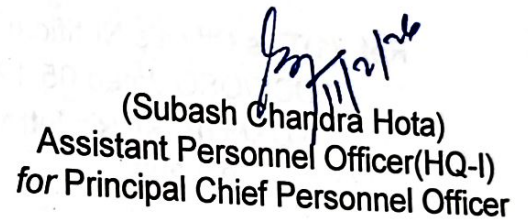 11/2/26
(Subash Chandra Hota)
Assistant Personnel Officer(HQ-I)
for Principal Chief Personnel Officer